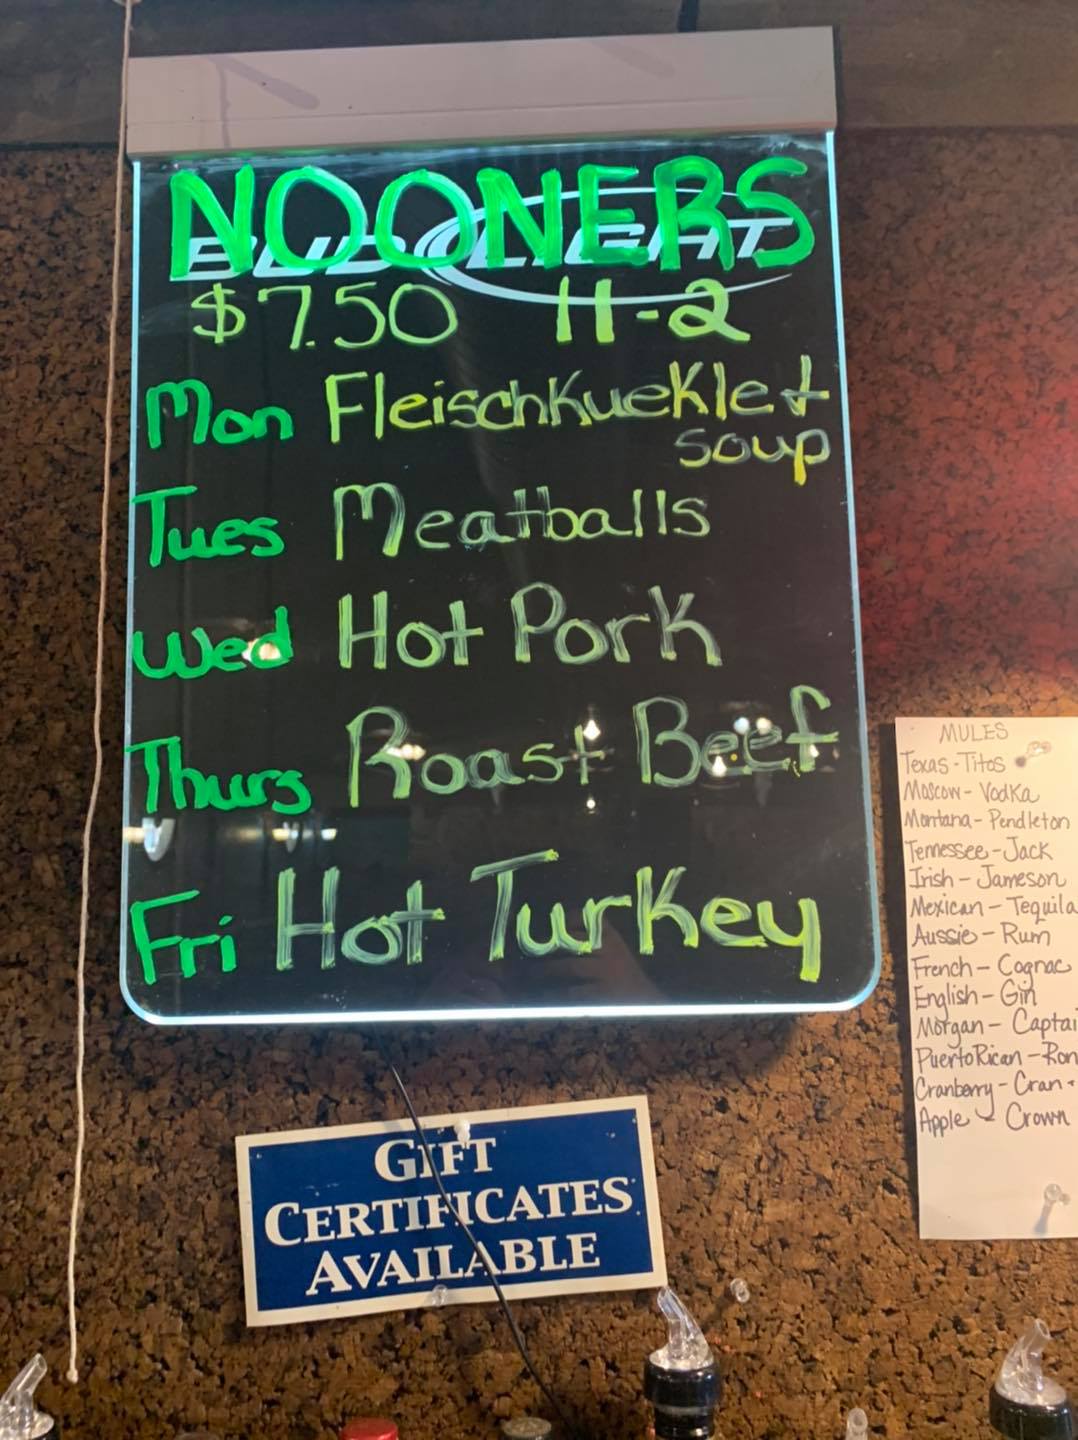 NOONERS
BUD LIGHT
$7.50 11-2
Mon Fleischkuekle +
soup
Tues Meatballs
Wed Hot Pork
Thurs Roast Beef
Fri Hot Turkey
GIFT
CERTIFICATES
AVAILABLE
MULES
Texas - Titos
Moscow - Vodka
Montana - Pendleton
Tennessee - Jack
Irish - Jameson
Mexican - Tequila
Aussie - Rum
French - Cognac
English - Gin
Morgan - Captai
Puerto Rican - Ron
Cranberry - Cran
Apple - Crown